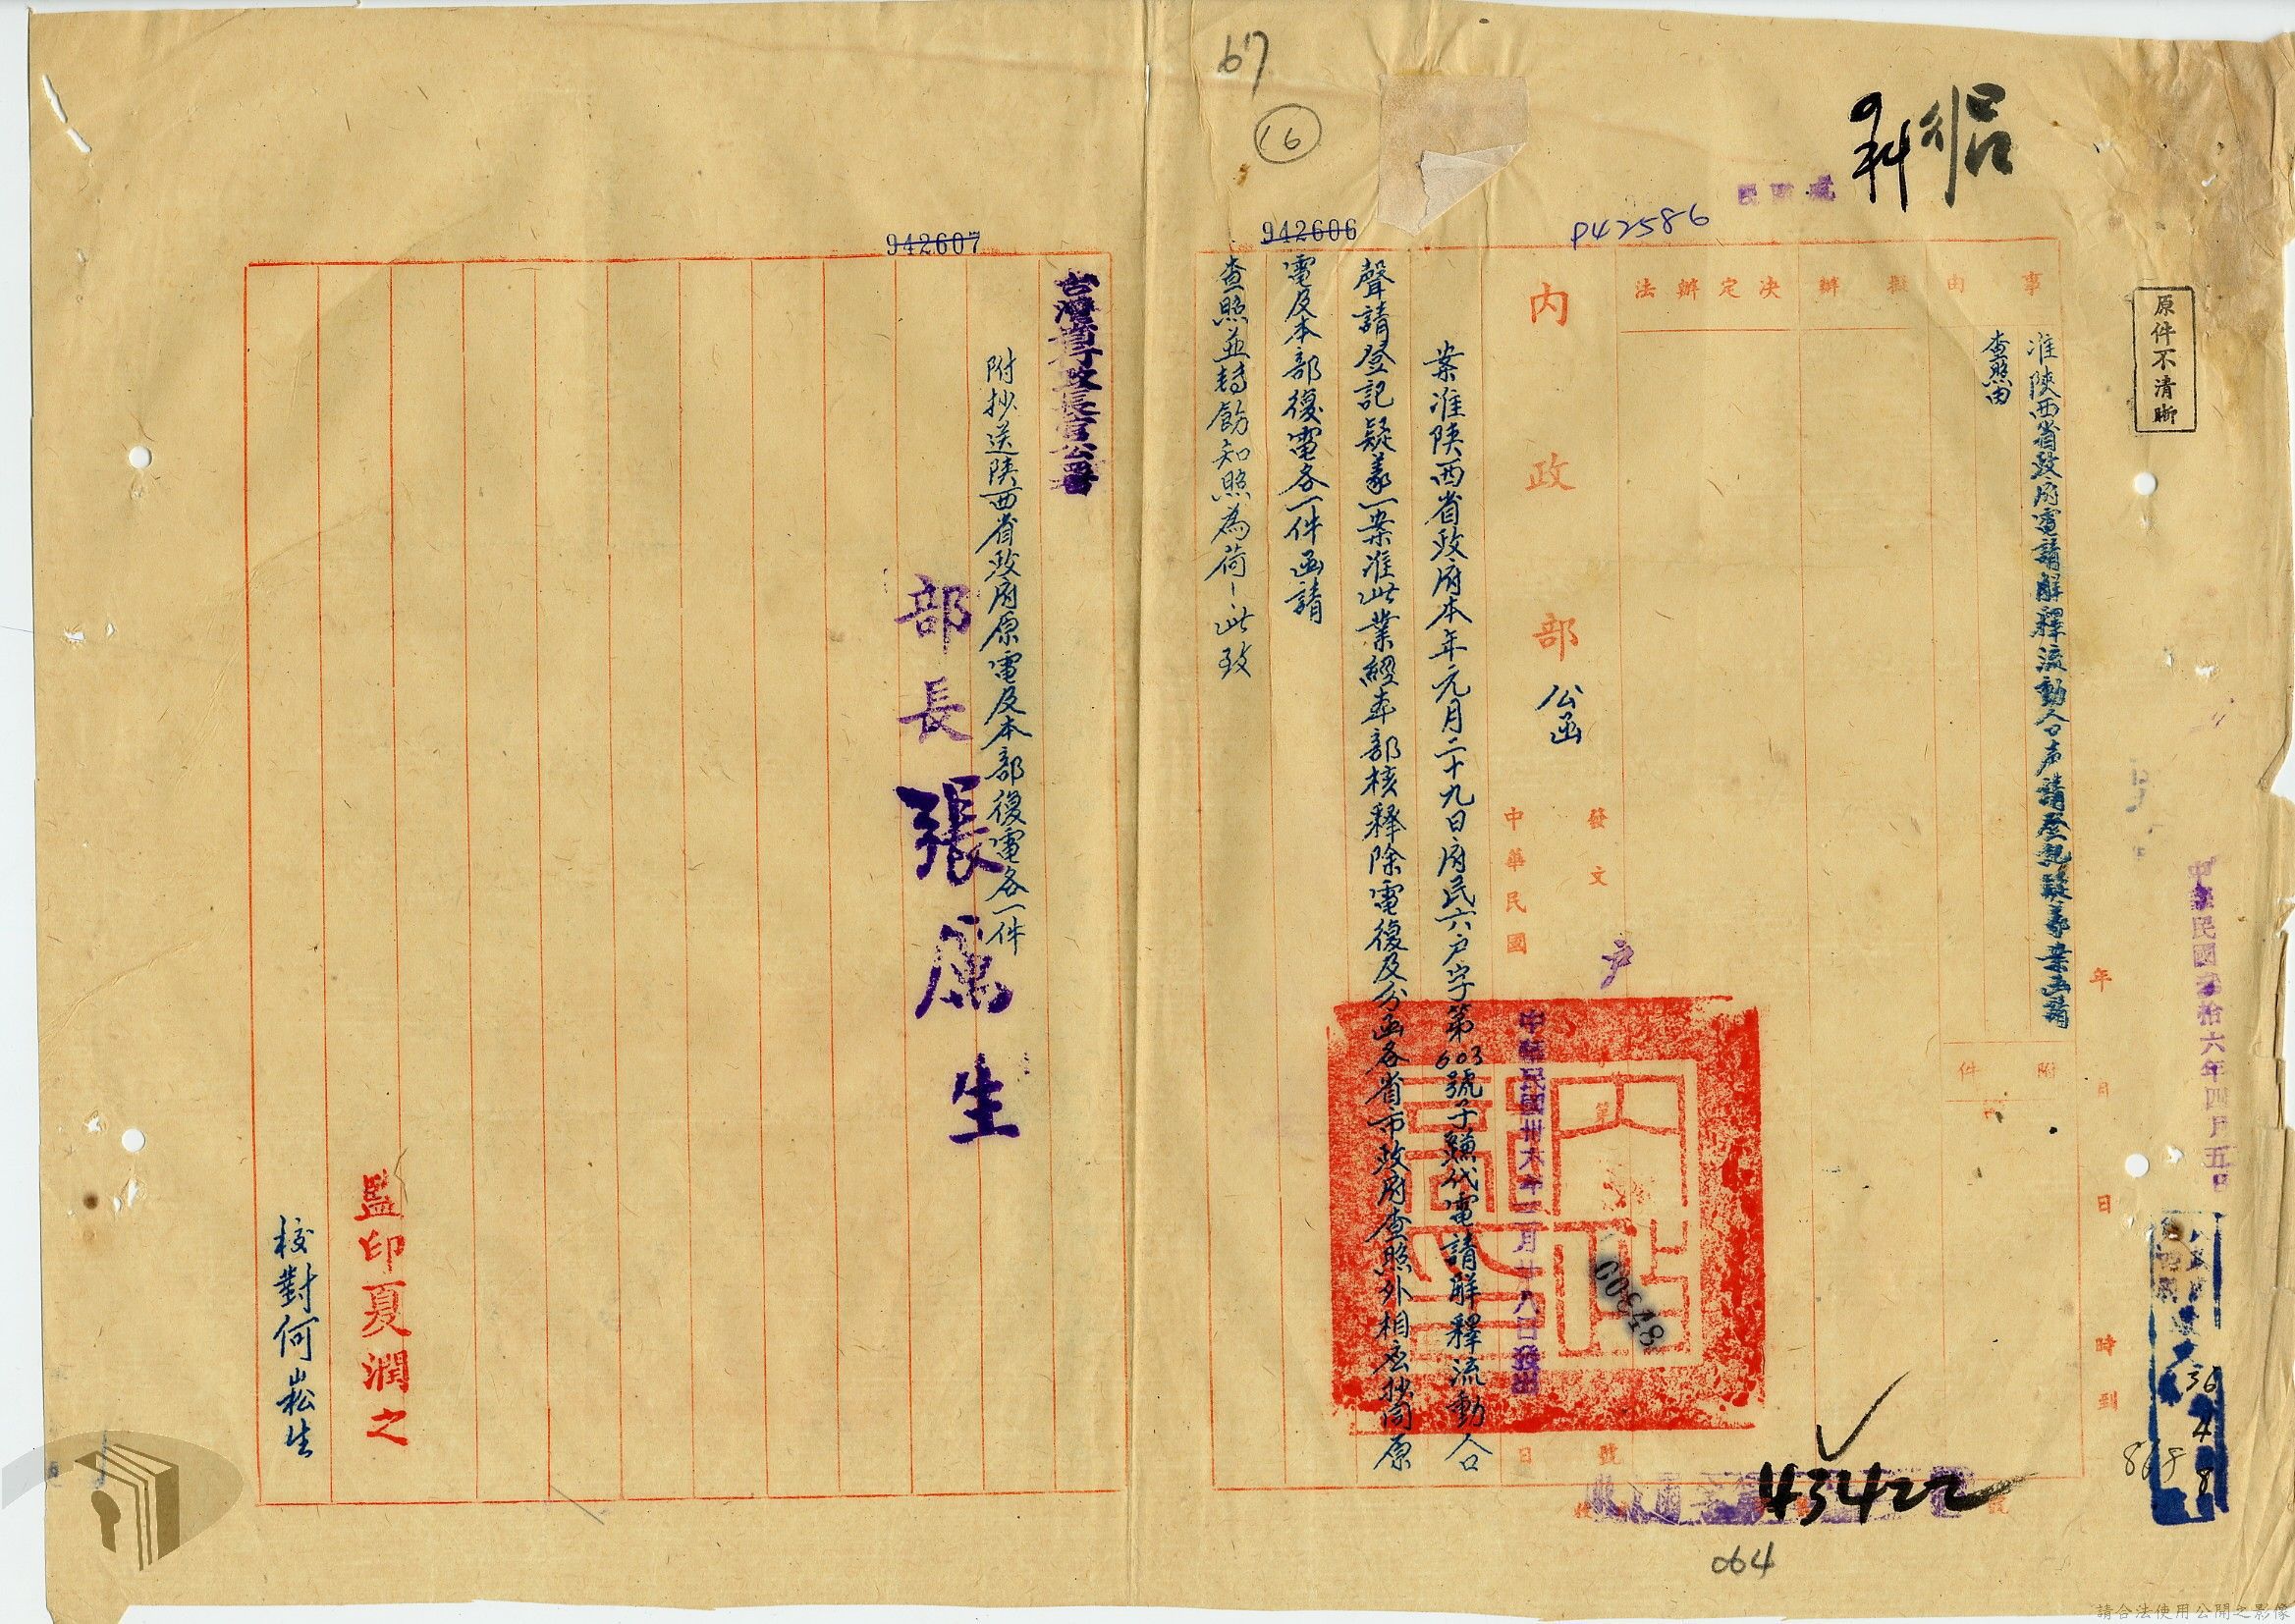 67
16
科
P42586
942606
942607
原件不清晰
中華民國叁拾六年四月五日
年 月 日 時到
事由
擬辦
決定辦法
准陝西省政府電請解釋流動人口声請登記疑義案函請
查照由
附件
內政部 公函
發文
戶
字第
00348
號
中華民國
中華民國卅六年三月廿八日發出
日
案准陝西省政府本年元月二十九日府民六戶字第603號子豔代電請解釋流動人口
聲請登記疑義一案准此業經本部核釋除電復及分函各省市政府查照外相應抄同原
電及本部復電各一件函請
查照並轉飭知照為荷!此致
台灣省行政長官公署
附抄送陝西省政府原電及本部復電各一件
部長張厲生
監印夏潤之
校對何崧生
36
4
8
43422
064
請合法使用公開之影像